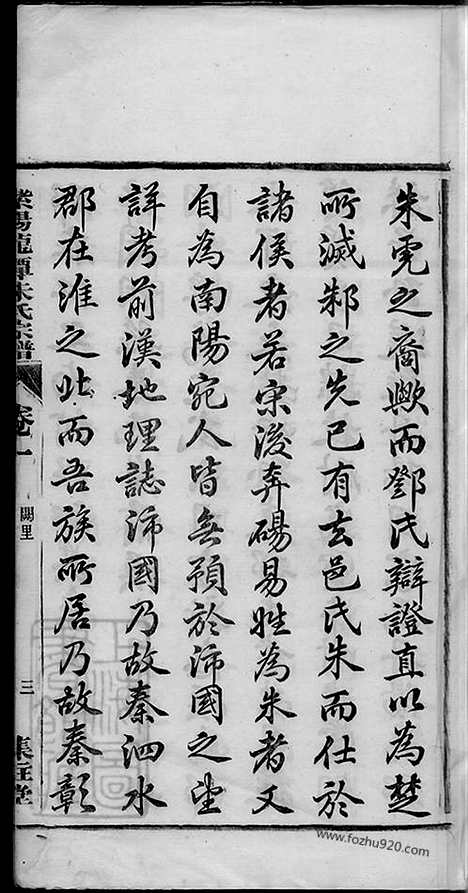 朱虎之裔歟而鄧氏辯證直以為楚
所滅邾之先已有去邑氏朱而仕於
諸侯者若宋後奔碭易姓為朱者又
自為南陽宛人皆無預於沛國之望
詳考前漢地理誌沛國乃故秦泗水
郡在淮之北而吾族所居乃故秦彰
紫陽龍潭朱氏宗譜
卷一
闕里
三
www.fozhu920.com